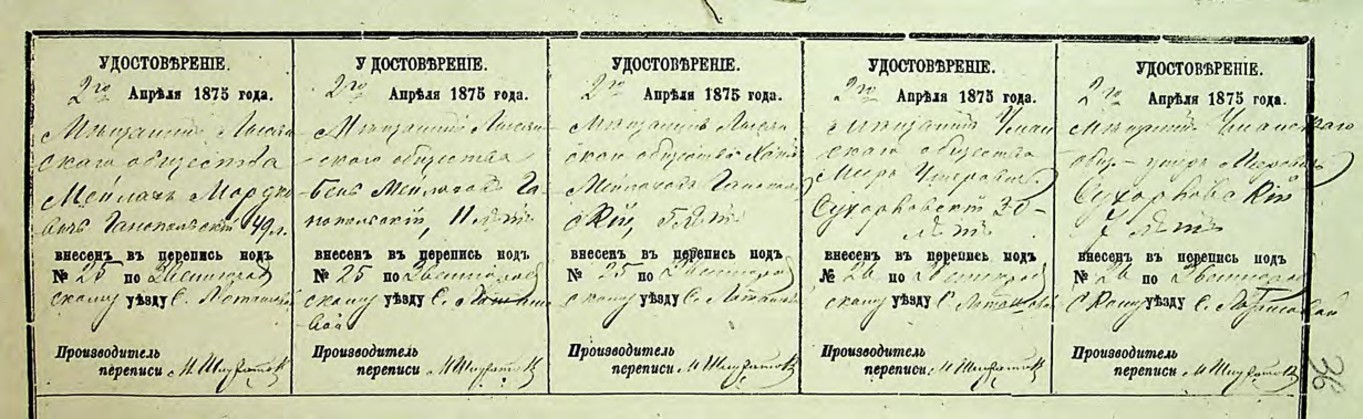 УДОСТОВѢРЕНІЕ.
2го Апрѣля 1875 года.
Мѣщанинъ Лысян
скаго общества
Мейлахъ Мордко
вичъ Ганопольскій 49 л.
внесенъ въ перепись подъ
№ 25 по Звенигород
скому уѣзду С.
Производитель
переписи
УДОСТОВѢРЕНІЕ.
2го Апрѣля 1875 года.
Мѣщанинъ Лысян
скаго общества
Бень Мейлаховъ Га
нопольскій, 11 лѣтъ
внесенъ въ перепись подъ
№ 25 по Звенигород
скому уѣзду С.
вой
Производитель
переписи
УДОСТОВѢРЕНІЕ.
2го Апрѣля 1875 года.
Мѣщанинъ Лысян
скаго общества
Мейлаховъ Ганополь
скій, 5 лѣтъ
внесенъ въ перепись подъ
№ 25 по Звенигород
скому уѣзду С.
Производитель
переписи
УДОСТОВѢРЕНІЕ.
2го Апрѣля 1875 года.
Мѣщанинъ Уман
скаго общества
Сухорковскій 30
лѣтъ
внесенъ въ перепись подъ
№ 26 по Звенигород
скому уѣзду С.
Производитель
переписи
УДОСТОВѢРЕНІЕ.
2го Апрѣля 1875 года.
Мѣщанинъ Уманскаго
общ.
Сухорковскій
7 лѣтъ
внесенъ въ перепись подъ
№ 26 по Звенигород
скому уѣзду С.
Производитель
переписи